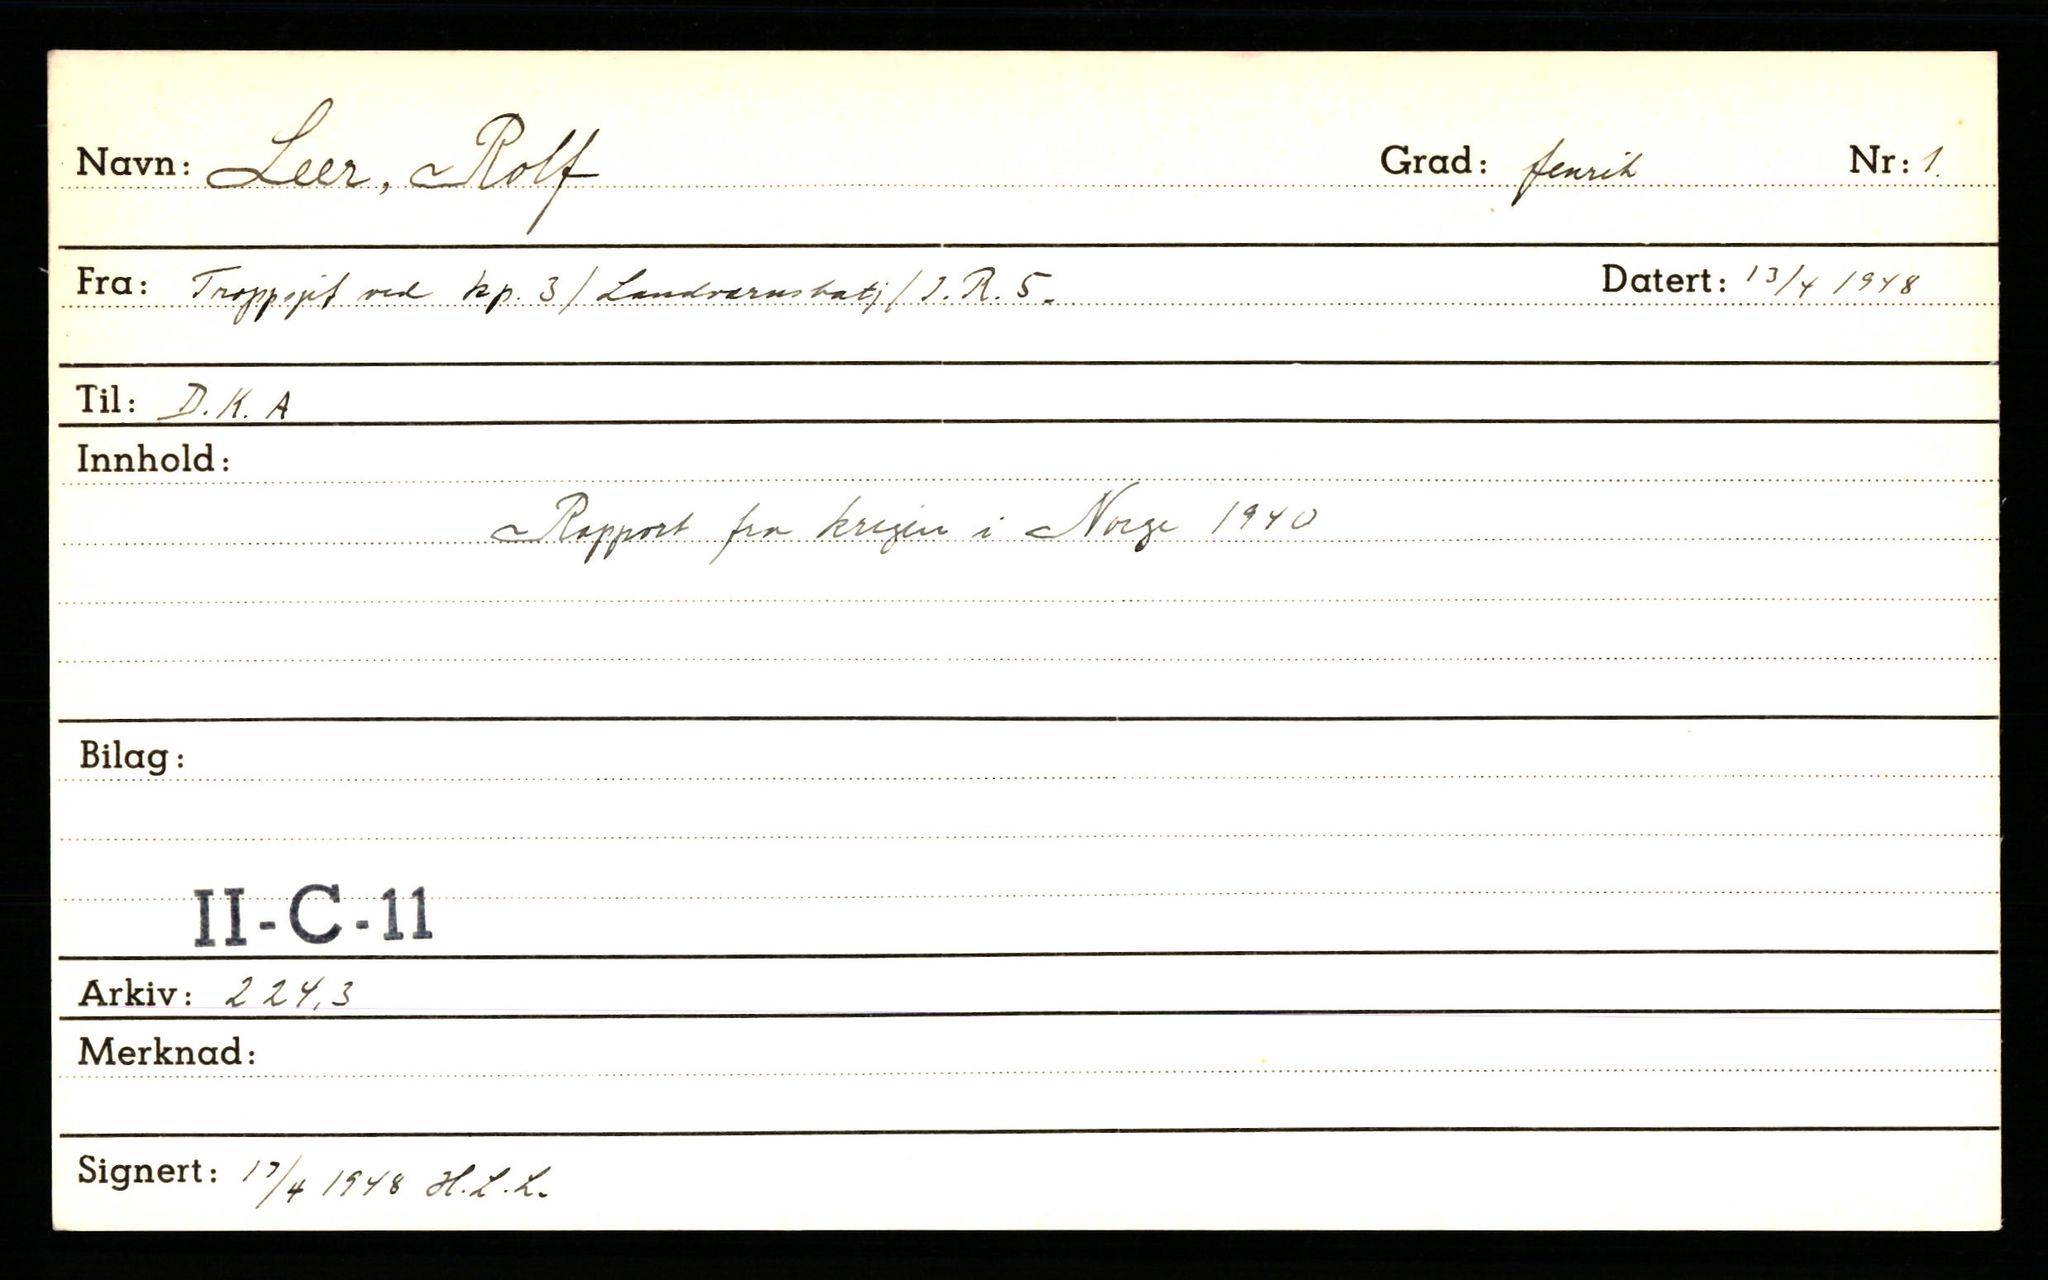 Navn: Leer, Rolf Grad: fenrik Nr: 1.
Fra: Troppsjef ved kp. 3/Landvernsbatj/I.R. 5. Datert: 13/4 1948
Til: D.K.A
Innhold:
Rapport fra krigen i Norge 1940
Bilag:
II-C-11
Arkiv: 224,3
Merknad:
Signert: 17/4 1948 H.L.L.